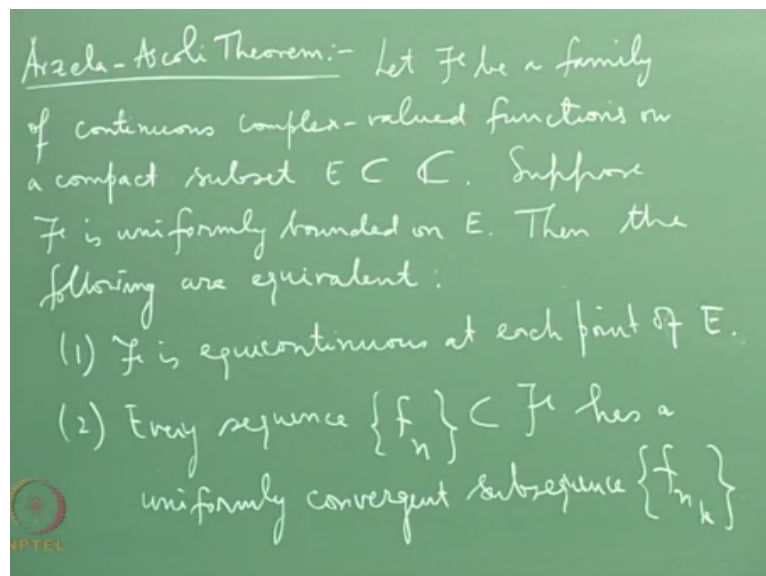 Arzela-Ascoli Theorem:- Let ℱ be a family
of continuous complex-valued functions on
a compact subset E ⊂ ℂ. Suppose
ℱ is uniformly bounded on E. Then the
following are equivalent:
(1) ℱ is equicontinuous at each point of E.
(2) Every sequence {f_n} ⊂ ℱ has a
uniformly convergent subsequence {f_{n_k}}
NPTEL